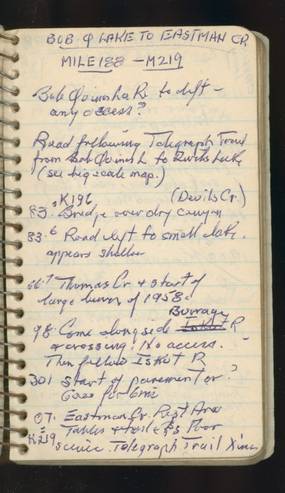 BOB Q LAKE TO EASTMAN CR
MILE 188 - M219
Bob Quinn Lake Rd to left -
any access?
Road following Telegraph Trail
from Bob Quinn L to
(see big scale map.)
K196 (Devils Cr.)
83. Bridge over dry canyon
83.6 Road left to small lake.
appears shallow
Thomas Cr & start of
large burn of 1958.
Burrage
98 Come alongside Iskut R
no crossing. No access. -
Then follow Iskut R
301 start of pavement or?
Goes for 6 mi
07. Eastman Cr. Rest Area
Tables & toilets Poor
K219 scenic. Telegraph Trail Xing